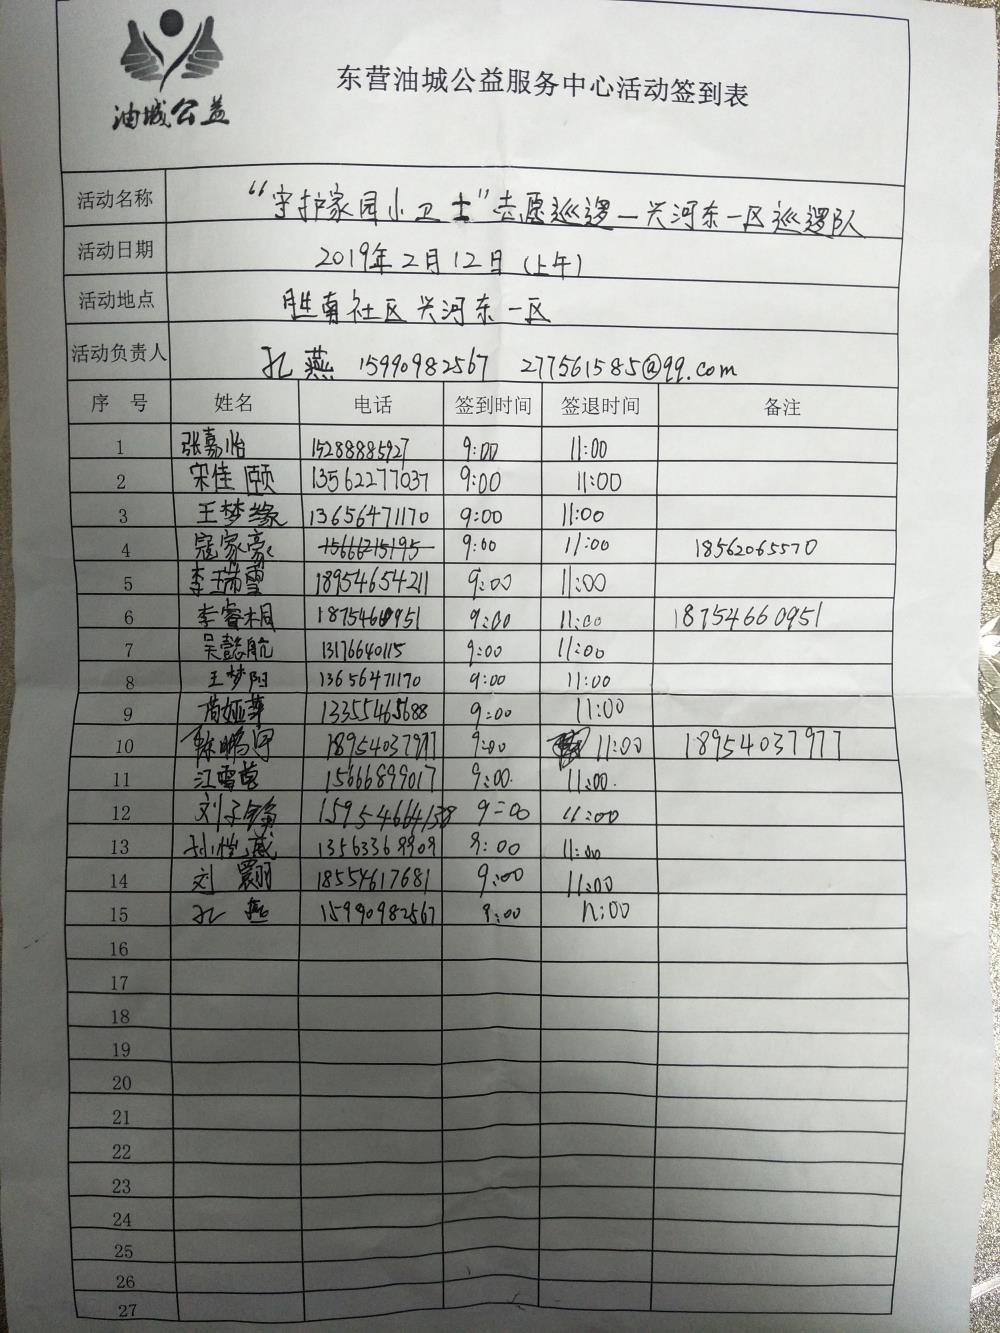 油城公益
东营油城公益服务中心活动签到表
活动名称 “守护家园小卫士”志愿巡逻—兴河东一区巡逻队
活动日期 2019年2月12日(上午)
活动地点 胜南社区兴河东一区
活动负责人 孔燕 15990982567 277561585@qq.com
序号 姓名 电话 签到时间 签退时间 备注
1 张嘉怡 15288885927 9:00 11:00
2 宋佳颐 13562277037 9:00 11:00
3 王梦缘 13656471170 9:00 11:00
4 寇家豪 15666215195 9:00 11:00 18562065570
5 李瑞雪 18954654211 9:00 11:00
6 李睿桐 18754660951 9:00 11:00 18754660951
7 吴懿航 13176640115 9:00 11:00
8 王梦阳 13656471170 9:00 11:00
9 13355465688 9:00 11:00
10 陈鹏宇 18954037977 9:00 11:00 18954037977
11 江雪莹 15666899017 9:00 11:00
12 刘子 15954664138 9:00 11:00
13 孙恺威 9:00 11:00
14 刘 18554617681 9:00 11:00
15 孔燕 15990982567 9:00 11:00
16
17
18
19
20
21
22
23
24
25
26
27